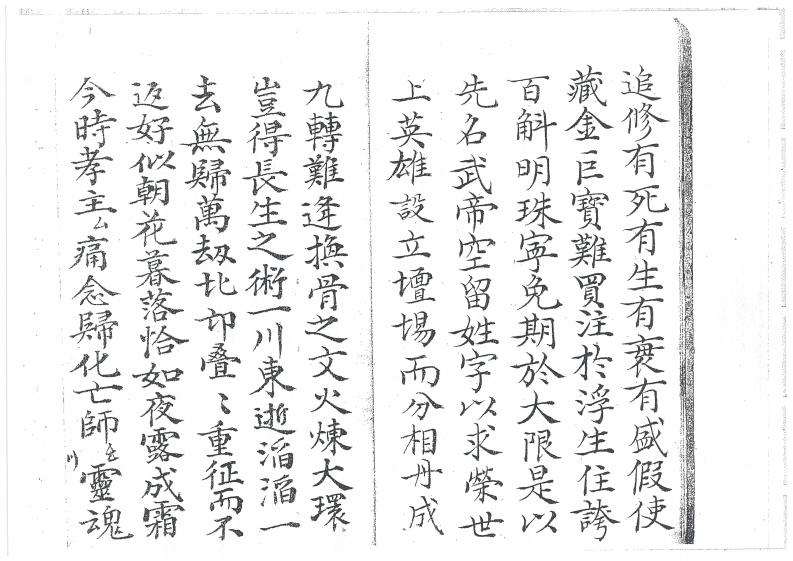 追修有死有生有衰有盛假使
藏金巨寶難買注扵浮生住誇
百斛明珠寧免期於大限是以
先名武帝空留姓字以求榮世
上英雄設立壇場而分相丹成
九轉難逢換骨之文火煉大環
豈得長生之術一川東逝滔滔一
去無歸萬劫北邙疊〻重征而不
返好似朝花暮落恰如夜露成霜
今時孝主厶痛念歸化亡師厶靈魂